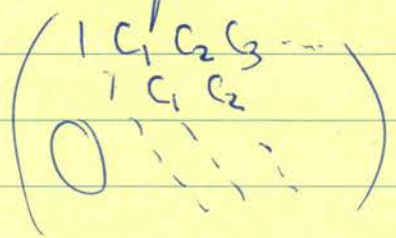 1 C₁ C₂ C₃ ...
1 C₁ C₂
0